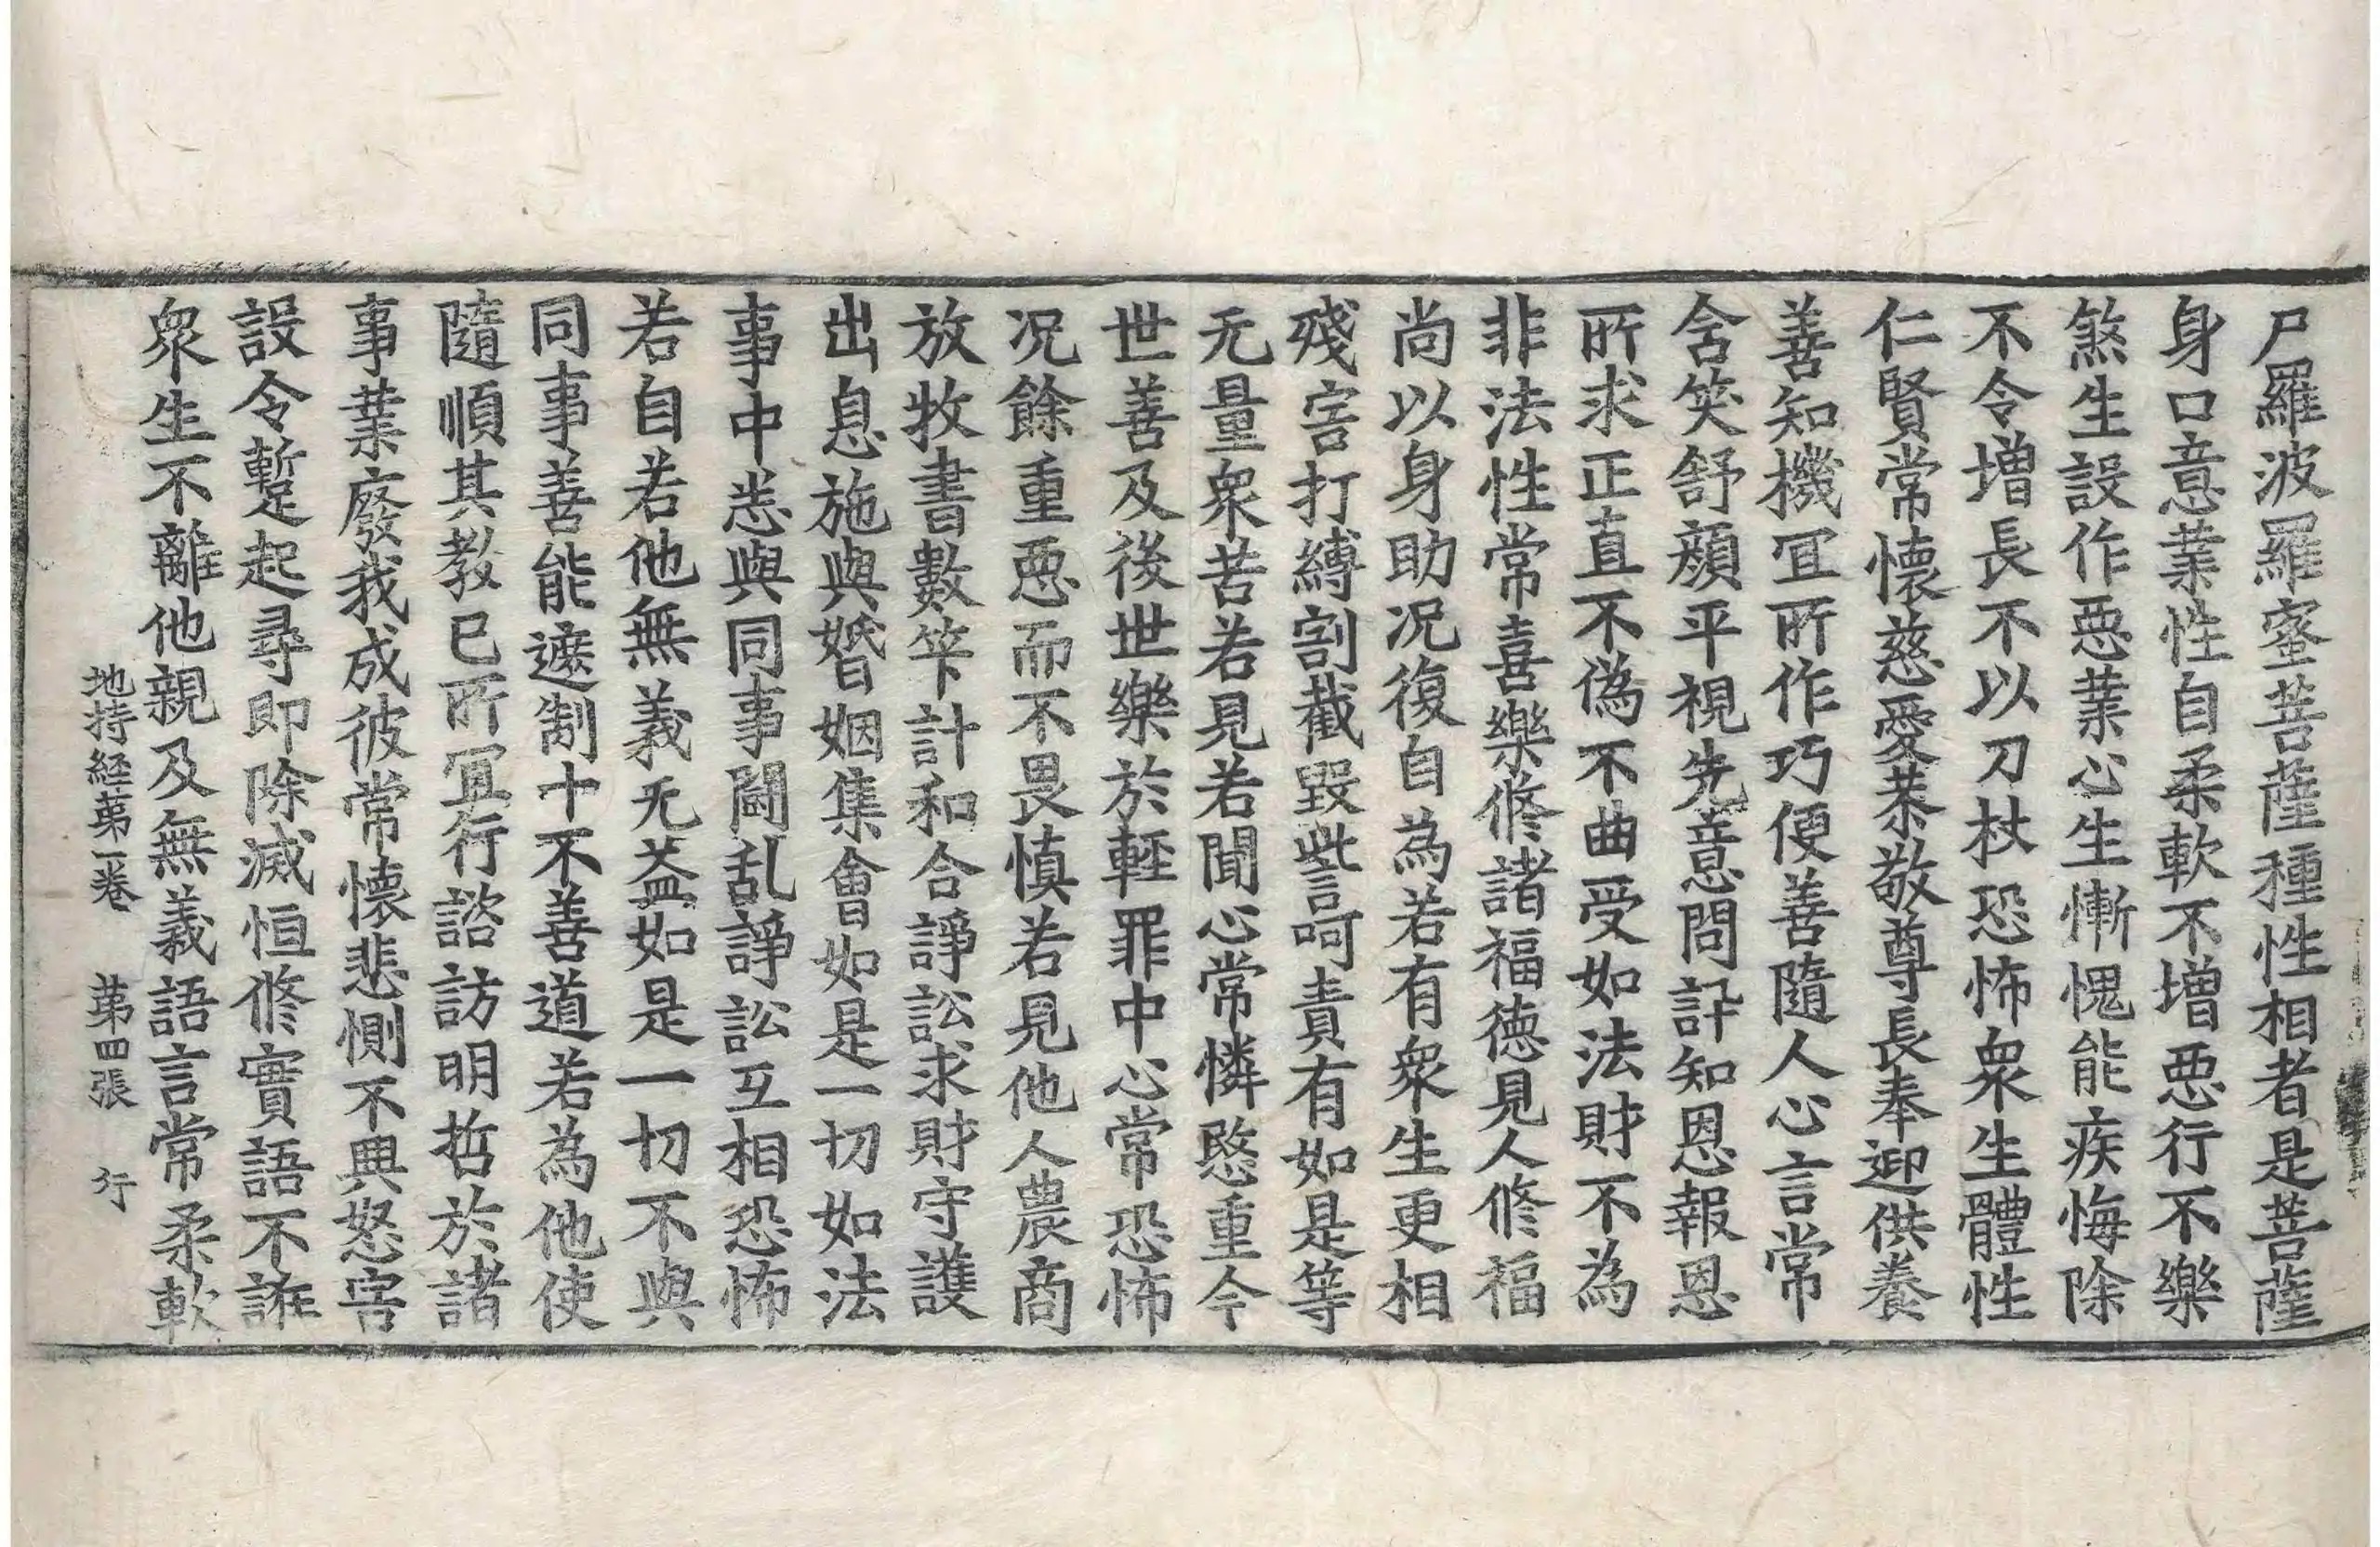 尸羅波羅蜜菩薩種性相者是菩薩
身口意業性自柔軟不增惡行不樂
煞生設作惡業心生慚愧能疾悔除
不令增長不以刀杖恐怖衆生體性
仁賢常懷慈愛恭敬尊長奉迎供養
善知機冝所作巧便善隨人心言常
含笑舒顔平視先意問訊知恩報恩
所求正直不偽不曲受如法財不為
非法性常喜樂修諸福德見人修福
尚以身助况復自為若有衆生更相
殘害打縛割截毀呰呵責有如是等
无量衆苦若見若聞心常憐愍重今
世善及後世樂於輕罪中心常恐怖
况餘重惡而不畏慎若見他人農商
放牧書數笇計和合諍訟求財守護
出息施與婚姻集會如是一切如法
事中悉與同事鬪乱諍訟互相恐怖
若自若他無義无益如是一切不與
同事善能遮制十不善道若為他使
隨順其教已所冝行諮訪明哲於諸
事業廢我成彼常懷悲惻不興怒害
設令暫起尋即除滅恒修實語不誑
衆生不離他親及無義語言常柔軟
地持經第一卷 第四張 行